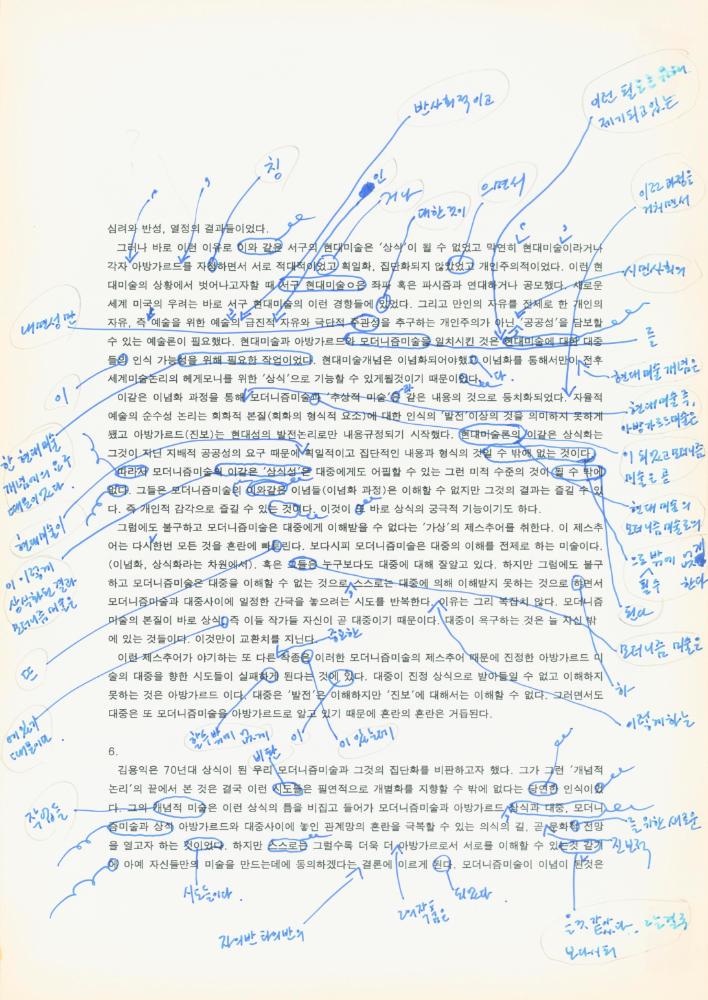 반사회적이고
이런
제기되고있는
칭
인
거나
의면서
대한 것이
이고 과정을
거치면서
심려와 반성, 열정의 결과들이었다.
그러나 바로 이런 이유로 이와 같은 서구의 현대미술은 ‘상식’이 될 수 없었고 막연히 현대미술이라거나
각자 아방가르드를 자청하면서 서로 적대적이었고 획일화, 집단화되지 않았었고 개인주의적이었다. 이런 현
대미술의 상황에서 벗어나고자할 때 서구 현대미술은 좌파 혹은 파시즘과 연대하거나 공모했다. 새로운
세계 미국의 우려는 바로 서구 현대미술의 이런 경향들에 있었다. 그리고 만인의 자유를 전제로 한 개인의
자유, 즉 예술을 위한 예술의 급진적 자유와 극단적 주관성을 추구하는 개인주의가 아닌 ‘공공성’을 담보할
수 있는 예술론이 필요했다. 현대미술과 아방가르드와 모더니즘미술을 일치시킨 것은 현대미술에 대한 대중
들의 인식 가능성을 위해 필요한 작업이었다. 현대미술개념은 이념화되어야했고 이념화를 통해서만이 전후
세계미술논리의 헤게모니를 위한 ‘상식’으로 기능할 수 있게될것이기 때문이었다.
이같은 이념화 과정을 통해 모더니즘미술과 ‘추상적 미술’은 같은 내용의 것으로 등치화되었다. 자율적
예술의 순수성 논리는 회화적 본질(회화의 형식적 요소)에 대한 인식의 ‘발전’이상의 것을 의미하지 못하게
됐고 아방가르드(진보)는 현대성의 발전논리로만 내용규정되기 시작했다. 현대미술론의 이같은 상식화는
그것이 지닌 지배적 공공성의 요구 때문에 획일적이고 집단적인 내용과 형식의 것일 수 밖에 없는 것이다.
따라서 모더니즘미술의 이같은 ‘상식성’은 대중에게도 어필할 수 있는 그런 미적 수준의 것이 될 수 밖에
없다. 그들은 모더니즘미술의 이와같은 이념들(이념화 과정)은 이해할 수 없지만 그것의 결과는 즐길 수 있
다. 즉 개인적 감각으로 즐길 수 있는 것이다. 이것이 곧 바로 상식의 궁극적 기능이기도 하다.
그럼에도 불구하고 모더니즘미술은 대중에게 이해받을 수 없다는 ‘가상’의 제스추어를 취한다. 이 제스추
어는 다시한번 모든 것을 혼란에 빠뜨린다. 보다시피 모더니즘미술은 대중의 이해를 전제로 하는 미술이다.
(이념화, 상식화라는 차원에서). 혹은 그들은 누구보다도 대중에 대해 잘알고 있다. 하지만 그럼에도 불구
하고 모더니즘미술은 대중을 이해할 수 없는 것으로 스스로는 대중에 의해 이해받지 못하는 것으로 하면서
모더니즘미술과 대중사이에 일정한 간극을 놓으려는 시도를 반복한다. 이유는 그리 복잡지 않다. 모더니즘
미술의 본질이 바로 상식, 즉 이들 작가들 자신이 곧 대중이기 때문이다. 대중이 욕구하는 것은 늘 자신 밖
에 있는 것들이다. 이것만이 교환치를 지닌다.
이런 제스추어가 야기하는 또 다른 착종은 이러한 모더니즘미술의 제스추어 때문에 진정한 아방가르드 미
술의 대중을 향한 시도들이 실패하게 된다는 것에 있다. 대중이 진정 상식으로 받아들일 수 없고 이해하지
못하는 것은 아방가르드 이다. 대중은 ‘발전’은 이해하지만 ‘진보’에 대해서는 이해할 수 없다. 그러면서도
대중은 또 모더니즘미술을 아방가르드로 알고 있기 때문에 혼란의 혼란은 거듭된다.
6.
김용익은 70년대 상식이 된 우리 모더니즘미술과 그것의 집단화를 비판하고자 했다. 그가 그런 ‘개념적
논리’의 끝에서 본 것은 결국 이런 시도들은 필연적으로 개별화를 지향할 수 밖에 없다는 당연한 인식이었
다. 그의 개념적 미술은 이런 상식의 틈을 비집고 들어가 모더니즘미술과 아방가르드, 상식과 대중, 모더니
즘미술과 상식 아방가르드와 대중사이에 놓인 관계망의 혼란을 극복할 수 있는 의식의 길, 곧 문화적 전망
을 열고자 하는 것이었다. 하지만 스스로는 그럴수록 더욱 더 아방가르드로서 서로를 이해할 수 있는것 같기
에 아예 자신들만의 미술을 만드는데에 동의하겠다는 결론에 이르게 된다. 모더니즘미술이 이념이 된것은
시민사회의
내면성 만
를
이
다.
현대미술 개념은
현대미술 즉,
아방가르드미술은
한 현대미술
현대미술이
현대미술의
모더니즘 미술로의
이 이렇게
모더니즘 미술은
된다
모더니즘 미술은
또
중요한
하
이렇게하는
에있기
때문이다.
할수밖에 없게
이
이 있는데
비판
작업들
을 위한 새로운
진보적
시도들이다.
자의반 타의반의
그의 작품은
되고만다.
보다시피